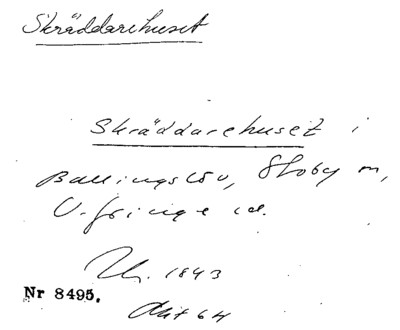 Skräddarehuset
Skräddarehuset i
Ballingslöv, Stoby sn,
V. Göinge hd.
1843
Nr 8495.
Akt 64